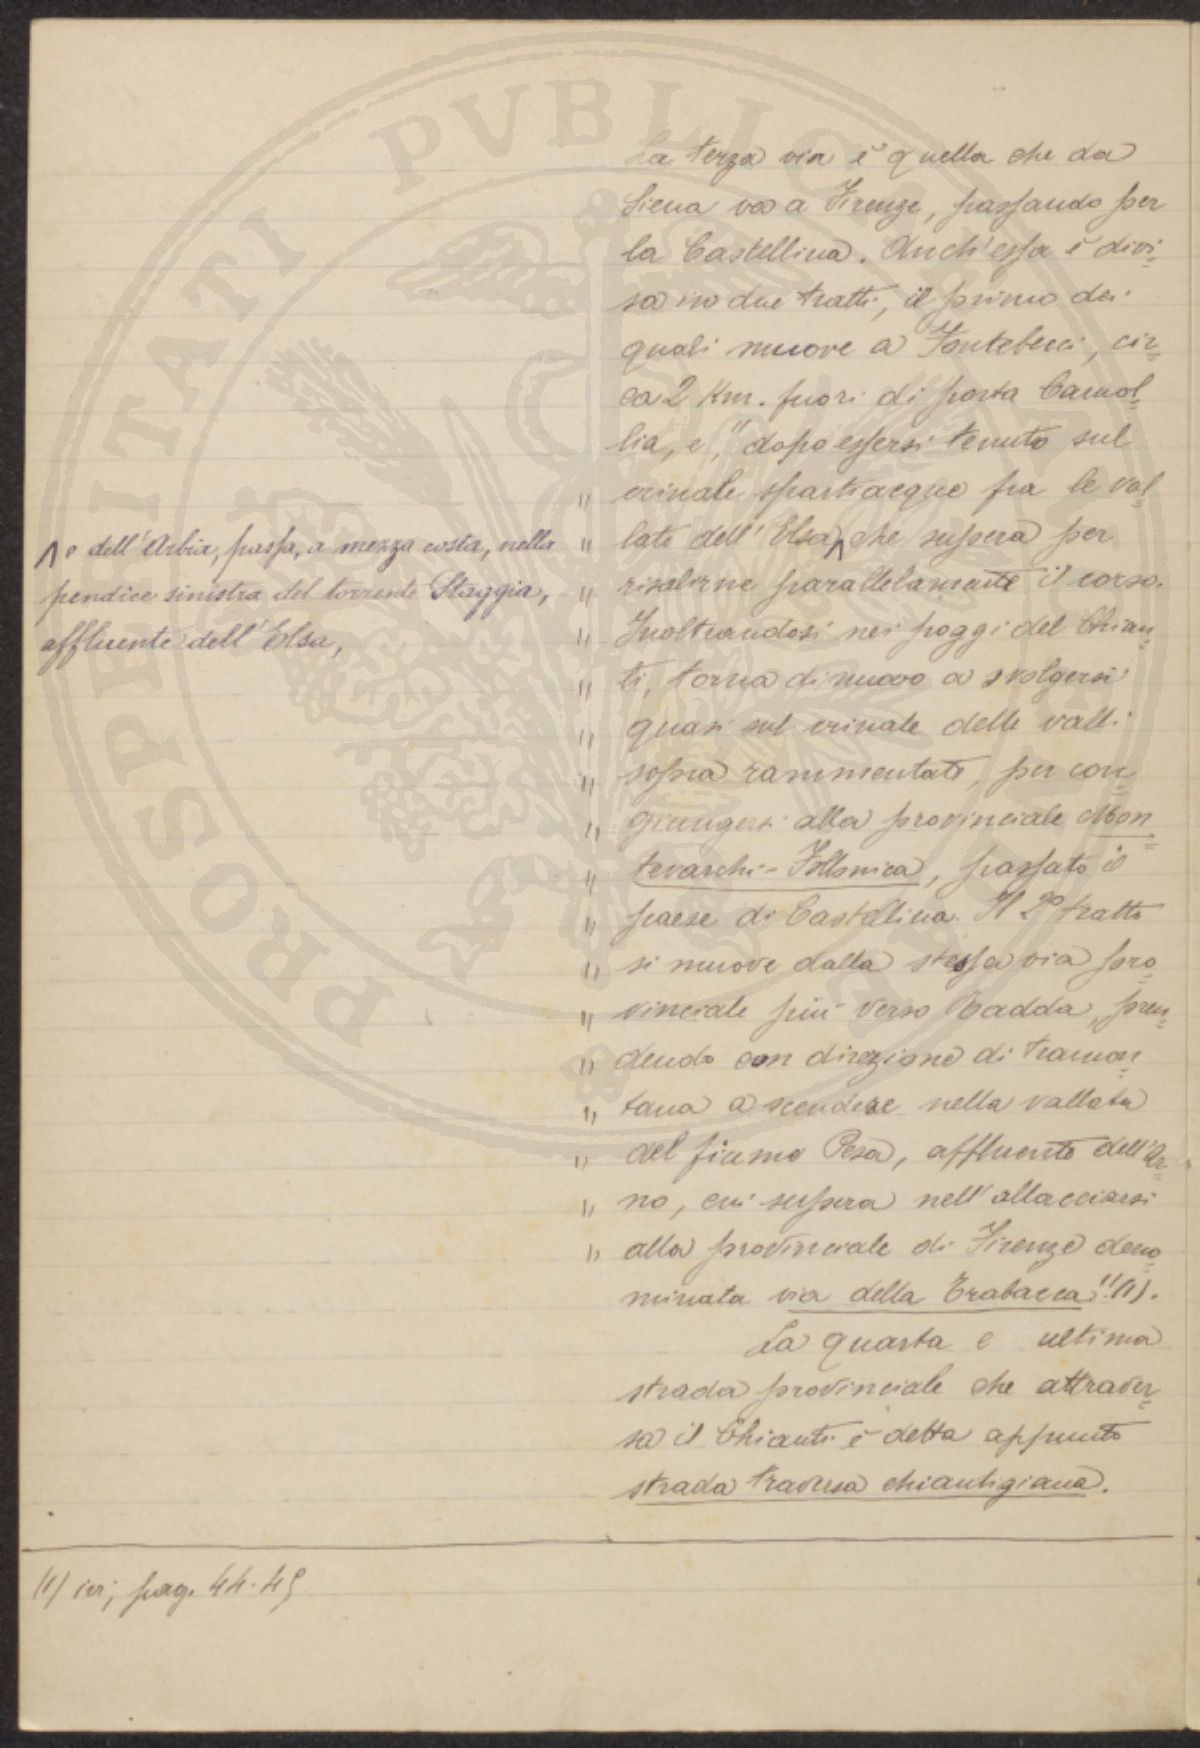 La terza via è quella che da
Siena va a Firenze, passando per
la Castellina. Anch'essa è divi=
sa in due tratti, il primo dei
quali muove a Fontebecci, cir=
ca 2 Km. fuori di porta Camol=
lia, e, "dopo essersi tenuto sul
" crinale spartiacque fra le val=
" late dell'Elsa ^ che supera per
^ e dell'Arbia, passa, a mezza costa, nella
pendice sinistra del torrente Staggia,
affluente dell'Elsa,
" risalirne parallelamente il corso.
" Inoltrandosi nei poggi del Chian=
" ti, torna di nuovo a svolgersi
" quasi sul crinale delle valli
" sopra rammentate, per con=
" giungersi alla provinciale Mon=
" tevarchi-Follonica, passato il
" paese di Castellina. Il 2° tratto
" si muove dalla stessa via pro=
" vinciale più verso Radda, pren=
" dendo con direzione di tramon=
" tana a scendere nella vallata
" del fiume Pesa, affluente dell'Ar=
" no, cui supera nell'allacciarsi
" alla provinciale di Firenze deno=
minata via della Trabacca" (1).
La quarta e ultima
strada provinciale che attraver=
sa il Chianti è detta appunto
strada traversa chiantigiana.
(1) ivi, pag. 44-45
PROSPERITATI PVBLICAE